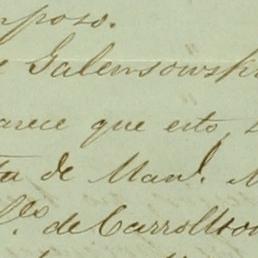 mposo.
e Galensowski
arece que esto
ta de Manl. M
f.es de Carrollton